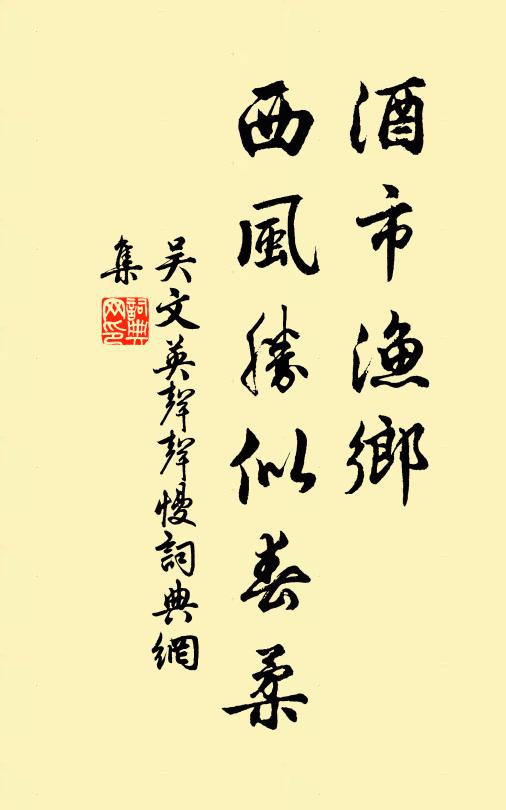 酒市漁鄉
西風勝似春柔
吳文英聲聲慢詞典網
集
詞典網印